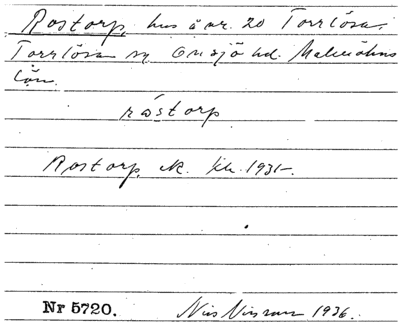 Rostorp, hus å nr. 20 Torrlösa,
Torrlösa sn Onsjö hd. Malmöhus
län.
råstorp
Rostorp, ek. kh. 1931.
Nr 5720. Nils Nilsson 1936.